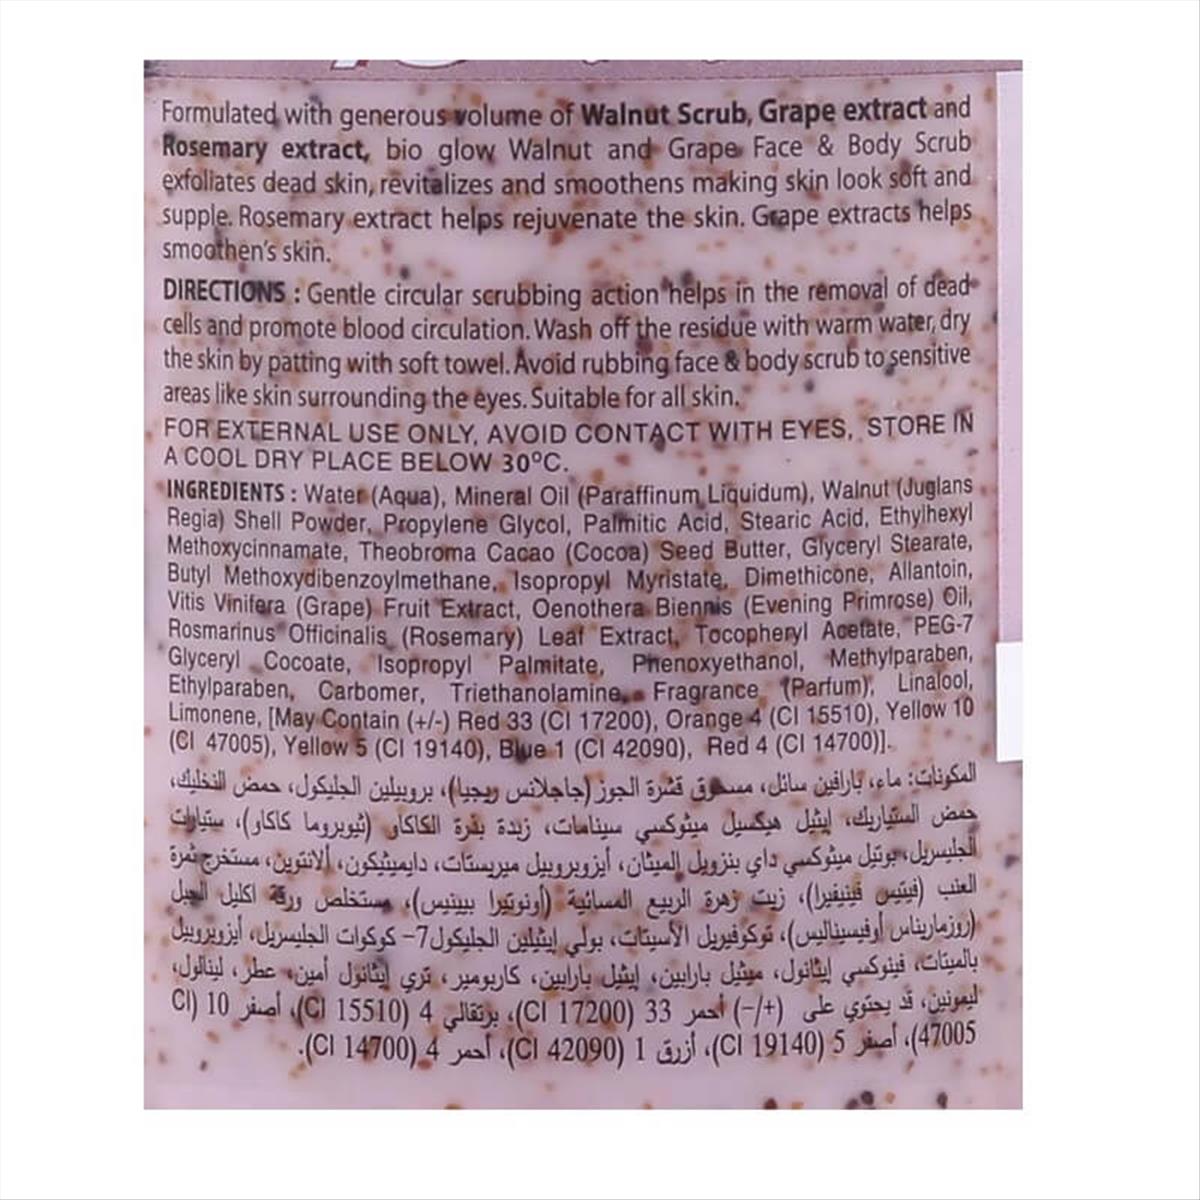 Formulated with generous volume of Walnut Scrub, Grape extract and
Rosemary extract, bio glow Walnut and Grape Face & Body Scrub
exfoliates dead skin, revitalizes and smoothens making skin look soft and
supple. Rosemary extract helps rejuvenate the skin. Grape extracts helps
smoothen's skin.
DIRECTIONS : Gentle circular scrubbing action helps in the removal of dead
cells and promote blood circulation. Wash off the residue with warm water, dry
the skin by patting with soft towel. Avoid rubbing face & body scrub to sensitive
areas like skin surrounding the eyes. Suitable for all skin.
FOR EXTERNAL USE ONLY, AVOID CONTACT WITH EYES, STORE IN
A COOL DRY PLACE BELOW 30°C.
INGREDIENTS : Water (Aqua), Mineral Oil (Paraffinum Liquidum), Walnut (Juglans
Regia) Shell Powder, Propylene Glycol, Palmitic Acid, Stearic Acid, Ethylhexyl
Methoxycinnamate, Theobroma Cacao (Cocoa) Seed Butter, Glyceryl Stearate,
Butyl Methoxydibenzoylmethane, Isopropyl Myristate, Dimethicone, Allantoin,
Vitis Vinifera (Grape) Fruit Extract, Oenothera Biennis (Evening Primrose) Oil,
Rosmarinus Officinalis (Rosemary) Leaf Extract, Tocopheryl Acetate, PEG-7
Glyceryl Cocoate, Isopropyl Palmitate, Phenoxyethanol, Methylparaben,
Ethylparaben, Carbomer, Triethanolamine, Fragrance (Parfum), Linalool,
Limonene, [May Contain (+/-) Red 33 (CI 17200), Orange 4 (CI 15510), Yellow 10
(CI 47005), Yellow 5 (CI 19140), Blue 1 (CI 42090), Red 4 (CI 14700)].
المكونات: ماء، بارافين سائل، مسحوق قشرة الجوز (جاجلانس ريجيا)، بروبيلين الجليكول، حمض النخليك،
حمض الستياريك، إيثيل هيكسيل ميثوكسي سينامات، زبدة بذرة الكاكاو (ثيوبروما كاكاو)، ستيارات
الجليسريل، بوتيل ميثوكسي داي بنزويل الميثان، أيزوبروبيل ميريستات، دايميثيكون، ألانتوين، مستخرج ثمرة
العنب (فيتيس فينيفيرا)، زيت زهرة الربيع المسائية (أونوثيرا بيينيس)، مستخلص ورقة اكليل الجبل
(روزماريناس أوفيسيناليس)، توكوفيريل الأسيتات، بولي إيثيلين الجليكول7- كوكوات الجليسريل، أيزوبروبيل
بالميتات، فينوكسي إيثانول، ميثيل بارابين، إيثيل بارابين، كاربومير، تري إيثانول أمين، عطر، لينالول،
ليمونين، قد يحتوي على (+/-) أحمر 33 (CI 17200)، برتقالي 4 (CI 15510)، أصفر 10 (CI
47005)، أصفر 5 (CI 19140)، أزرق 1 (CI 42090)، أحمر 4 (CI 14700).